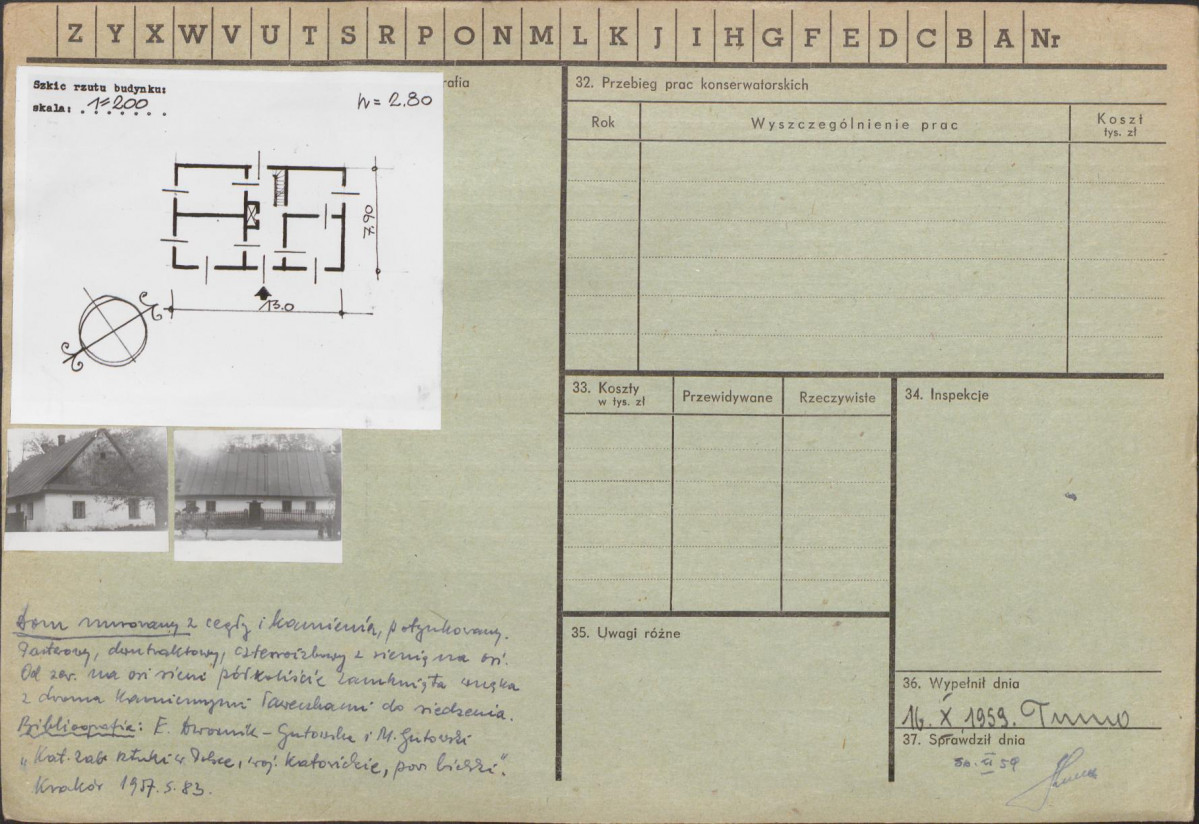 Z Y X W V U T S R P O N M L K J I H G F E D C B A Nr
Szkic rzutu budynku:
skala: 1=200
h = 2.80
7.90
13.0
rafia
Dom murowany z cegły i kamienia, potynkowany.
Parterowy, dwutraktowy, czteroizbowy z sienią na osi.
Od zew. na osi sieni półkoliście zamknięta wnęka
z dwoma kamiennymi ławeczkami do siedzenia.
Bibliografia: E. Dwornik-Gutowska i M. Gutowski
"Kat. zab. sztuki w Polsce, woj. katowickie, pow. bielski".
Kraków 1957. s. 83.
32. Przebieg prac konserwatorskich
Rok
Wyszczególnienie prac
Koszt
tys. zł
33. Koszty
w tys. zł
Przewidywane
Rzeczywiste
34. Inspekcje
35. Uwagi różne
36. Wypełnił dnia
16. X 1959.
37. Sprawdził dnia
XI 59